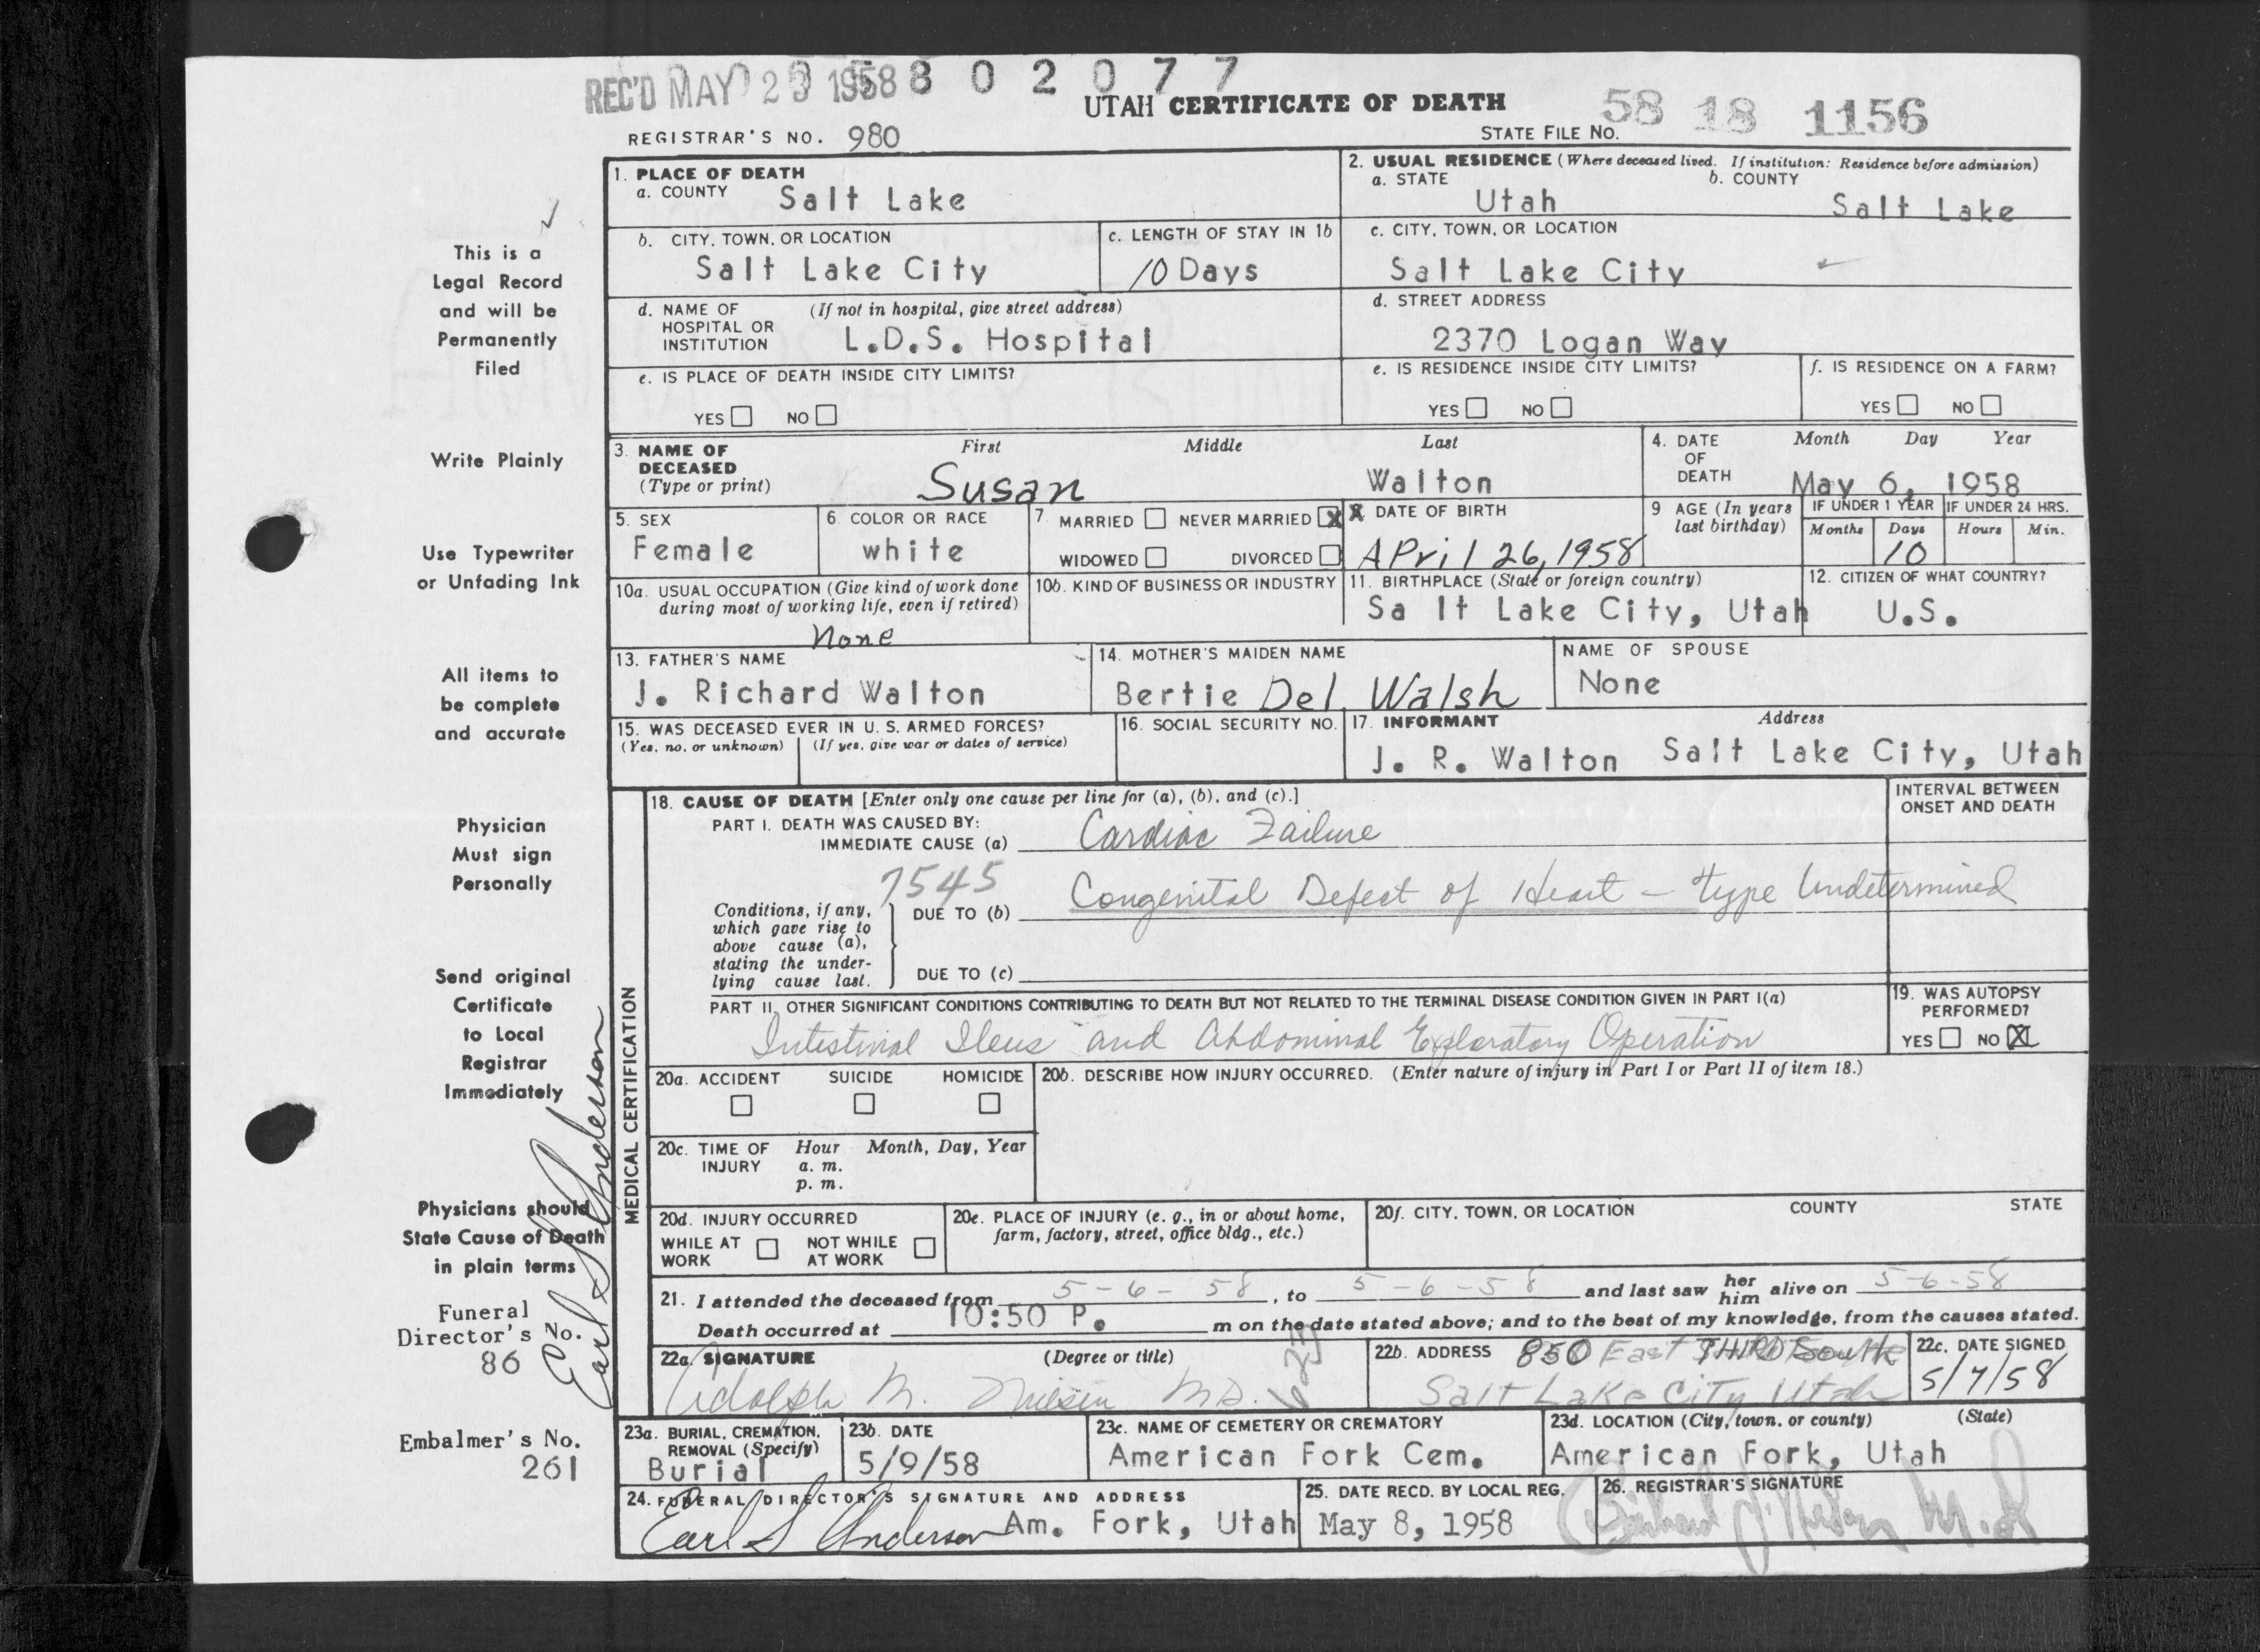 REC'D MAY 23 1958 5 8 0 2 0 7 7
UTAH CERTIFICATE OF DEATH
58 18 1156
REGISTRAR'S NO. 980
STATE FILE NO.
This is a
Legal Record
and will be
Permanently
Filed
Write Plainly
Use Typewriter
or Unfading Ink
All items to
be complete
and accurate
Physician
Must sign
Personally
Send original
Certificate
to Local
Registrar
Immediately
Physicians should
State Cause of Death
in plain terms
Funeral
Director's No.
86
Embalmer's No.
261
Earl S Anderson
1. PLACE OF DEATH
a. COUNTY Salt Lake
2. USUAL RESIDENCE (Where deceased lived. If institution: Residence before admission)
a. STATE Utah
b. COUNTY Salt Lake
b. CITY, TOWN, OR LOCATION
Salt Lake City
c. LENGTH OF STAY IN 1b
10 Days
c. CITY, TOWN, OR LOCATION
Salt Lake City
d. NAME OF HOSPITAL OR INSTITUTION (If not in hospital, give street address)
L.D.S. Hospital
d. STREET ADDRESS
2370 Logan Way
e. IS PLACE OF DEATH INSIDE CITY LIMITS?
YES NO
e. IS RESIDENCE INSIDE CITY LIMITS?
YES NO
f. IS RESIDENCE ON A FARM?
YES NO
3. NAME OF DECEASED (Type or print)
First Middle Last
Susan Walton
4. DATE OF DEATH
Month Day Year
May 6, 1958
5. SEX
Female
6. COLOR OR RACE
white
7. MARRIED NEVER MARRIED X
WIDOWED DIVORCED
8 DATE OF BIRTH
April 26, 1958
9 AGE (In years last birthday)
IF UNDER 1 YEAR
Months Days
10
IF UNDER 24 HRS.
Hours Min.
10a. USUAL OCCUPATION (Give kind of work done during most of working life, even if retired)
None
10b. KIND OF BUSINESS OR INDUSTRY
11. BIRTHPLACE (State or foreign country)
Sa lt Lake City, Utah
12. CITIZEN OF WHAT COUNTRY?
U.S.
13. FATHER'S NAME
J. Richard Walton
14. MOTHER'S MAIDEN NAME
Bertie Del Walsh
NAME OF SPOUSE
None
15. WAS DECEASED EVER IN U. S. ARMED FORCES?
(Yes, no, or unknown) (If yes, give war or dates of service)
16. SOCIAL SECURITY NO.
17. INFORMANT Address
J. R. Walton Salt Lake City, Utah
MEDICAL CERTIFICATION
18. CAUSE OF DEATH [Enter only one cause per line for (a), (b), and (c).]
INTERVAL BETWEEN ONSET AND DEATH
PART I. DEATH WAS CAUSED BY:
IMMEDIATE CAUSE (a) Cardiac Failure
7545
Conditions, if any, which gave rise to above cause (a), stating the underlying cause last.
DUE TO (b) Congenital Defect of Heart - type Undetermined
DUE TO (c)
PART II. OTHER SIGNIFICANT CONDITIONS CONTRIBUTING TO DEATH BUT NOT RELATED TO THE TERMINAL DISEASE CONDITION GIVEN IN PART I(a)
Intestinal Ileus and Abdominal Exploratory Operation
19. WAS AUTOPSY PERFORMED?
YES NO X
20a. ACCIDENT SUICIDE HOMICIDE
20b. DESCRIBE HOW INJURY OCCURRED. (Enter nature of injury in Part I or Part II of item 18.)
20c. TIME OF INJURY Hour Month, Day, Year
a. m.
p. m.
20d. INJURY OCCURRED
WHILE AT WORK NOT WHILE AT WORK
20e. PLACE OF INJURY (e. g., in or about home, farm, factory, street, office bldg., etc.)
20f. CITY, TOWN, OR LOCATION COUNTY STATE
21. I attended the deceased from 5-6-58, to 5-6-58 and last saw her him alive on 5-6-58
Death occurred at 10:50 P. m on the date stated above; and to the best of my knowledge, from the causes stated.
22a. SIGNATURE (Degree or title)
Adolph M. Nielsen MD.
22b. ADDRESS 850 East THIRD South
Salt Lake City Utah
22c. DATE SIGNED
5/7/58
23a. BURIAL, CREMATION, REMOVAL (Specify)
Burial
23b. DATE
5/9/58
23c. NAME OF CEMETERY OR CREMATORY
American Fork Cem.
23d. LOCATION (City, town, or county) (State)
American Fork, Utah
24. FUNERAL DIRECTOR'S SIGNATURE AND ADDRESS
Earl S Anderson Am. Fork, Utah
25. DATE RECD. BY LOCAL REG.
May 8, 1958
26. REGISTRAR'S SIGNATURE
M.D.